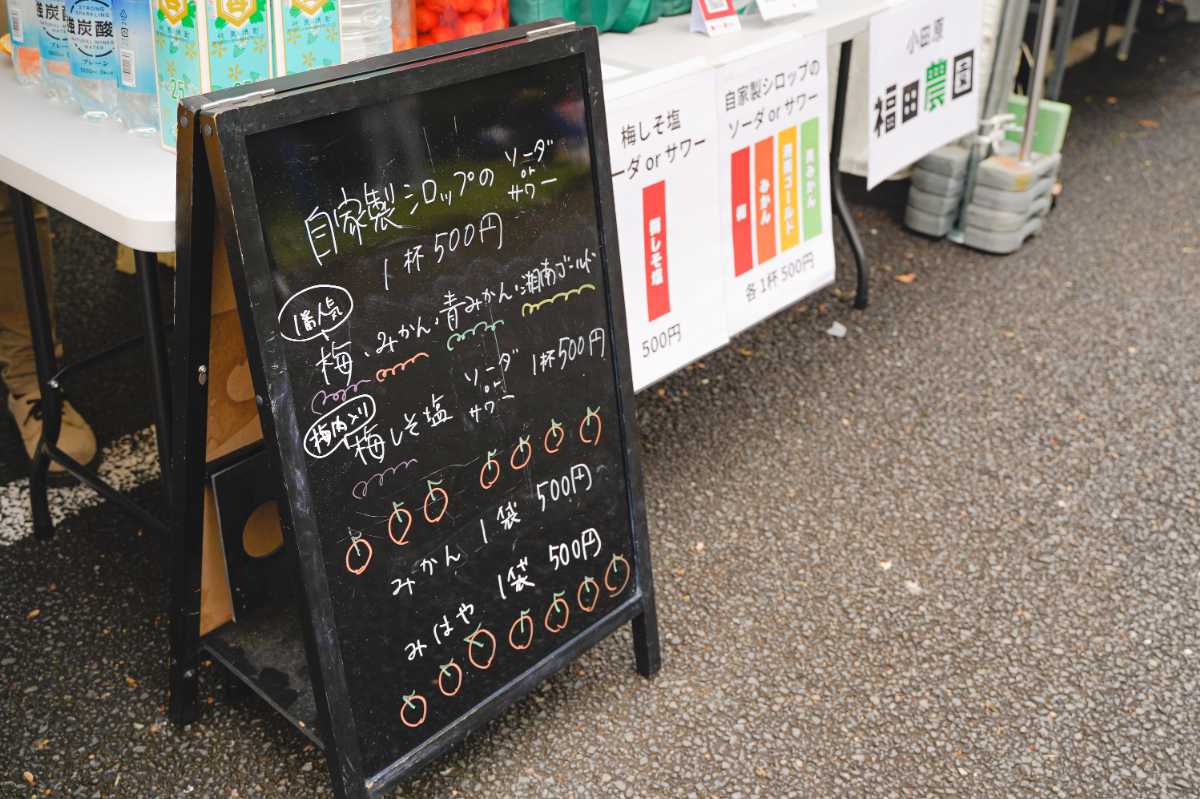 強炭酸
強炭酸
STRONG
SPARKLING
強炭酸
NATURAL MINERAL
WATER
プレーン
自家製シロップの ソーダ
or
サワー
1杯 500円
1番人気
梅・みかん・青みかん・湘南ゴールド
梅肉入り
梅しそ塩 ソーダ
or
サワー
1杯500円
みかん 1袋 500円
みはや 1袋 500円
梅しそ塩
ーダ or サワー
梅しそ塩
500円
自家製シロップの
ソーダ or サワー
梅
みかん
湘南ゴールド
青みかん
各1杯 500円
小田原
福田農園